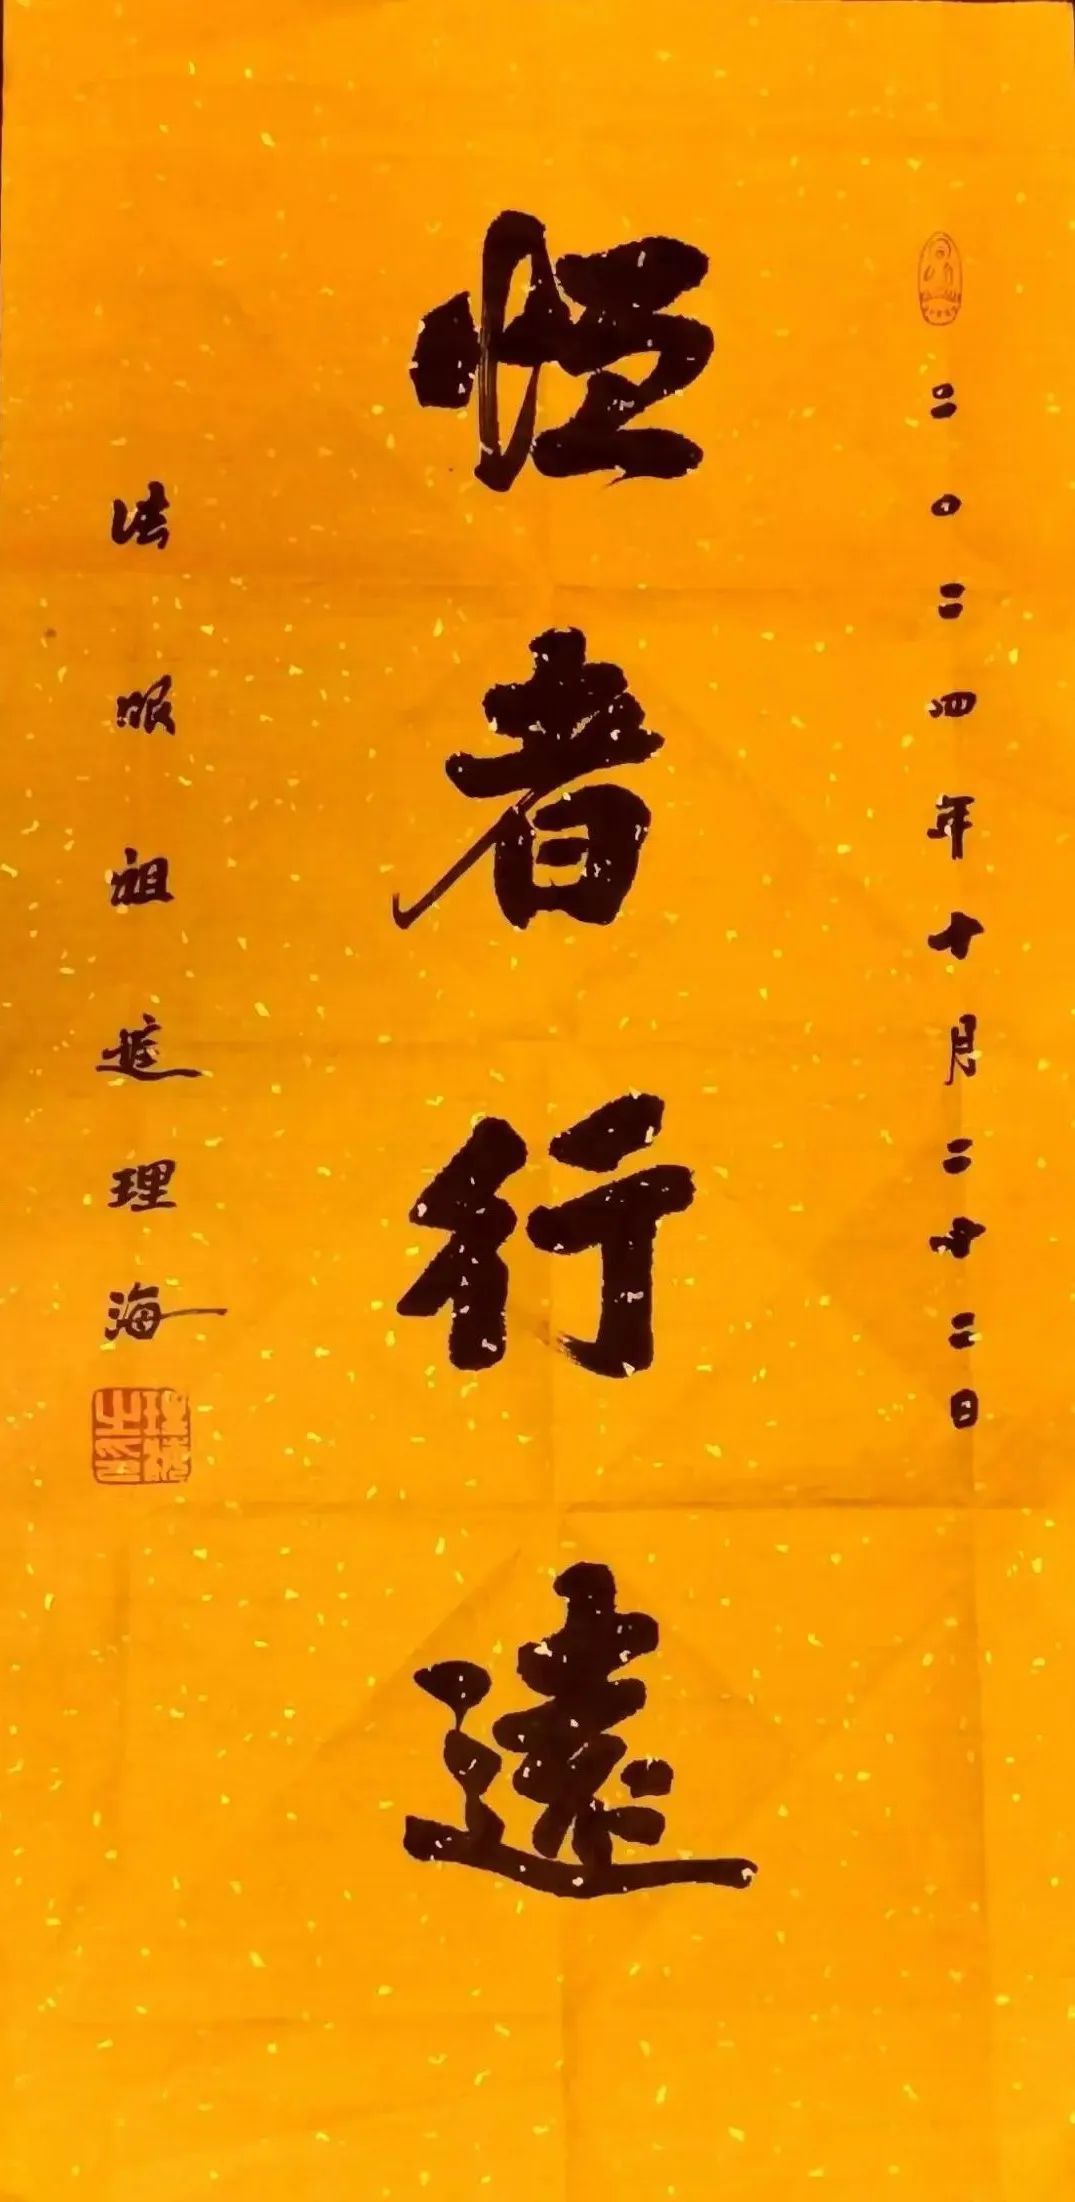 二〇二四年十月二十二日
恒者行遠
法眼祖庭理海
理海之印